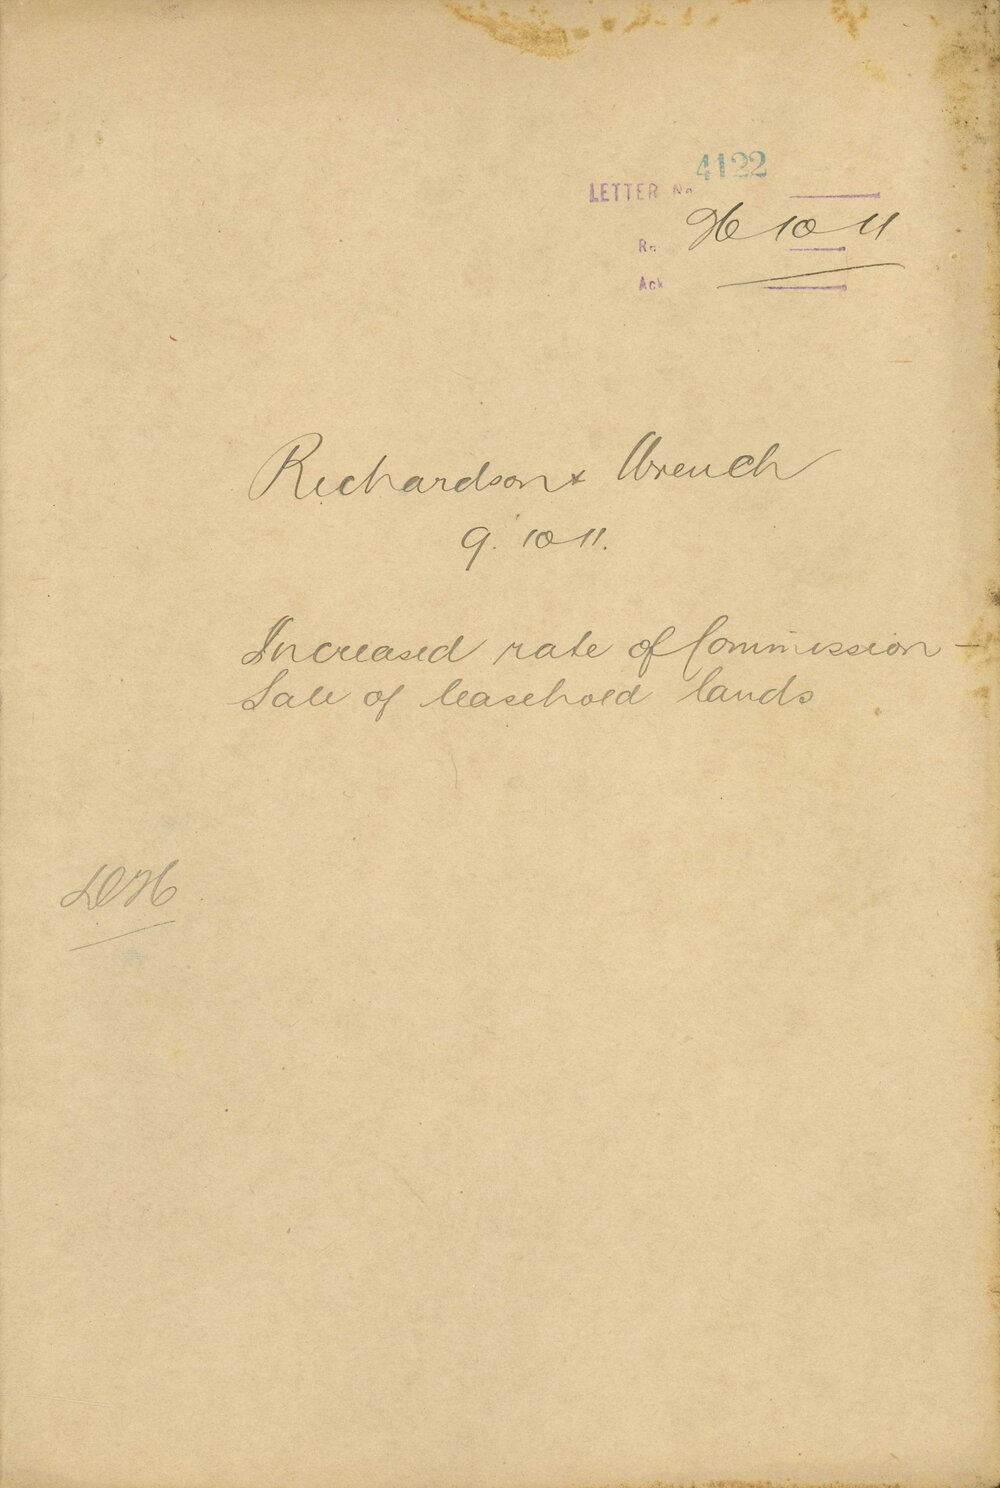 4122
LETTER No
Re 26 10 11
Ack
Richardson & Wrench
9. 10 11.
Increased rate of Commission -
Sale of leasehold lands